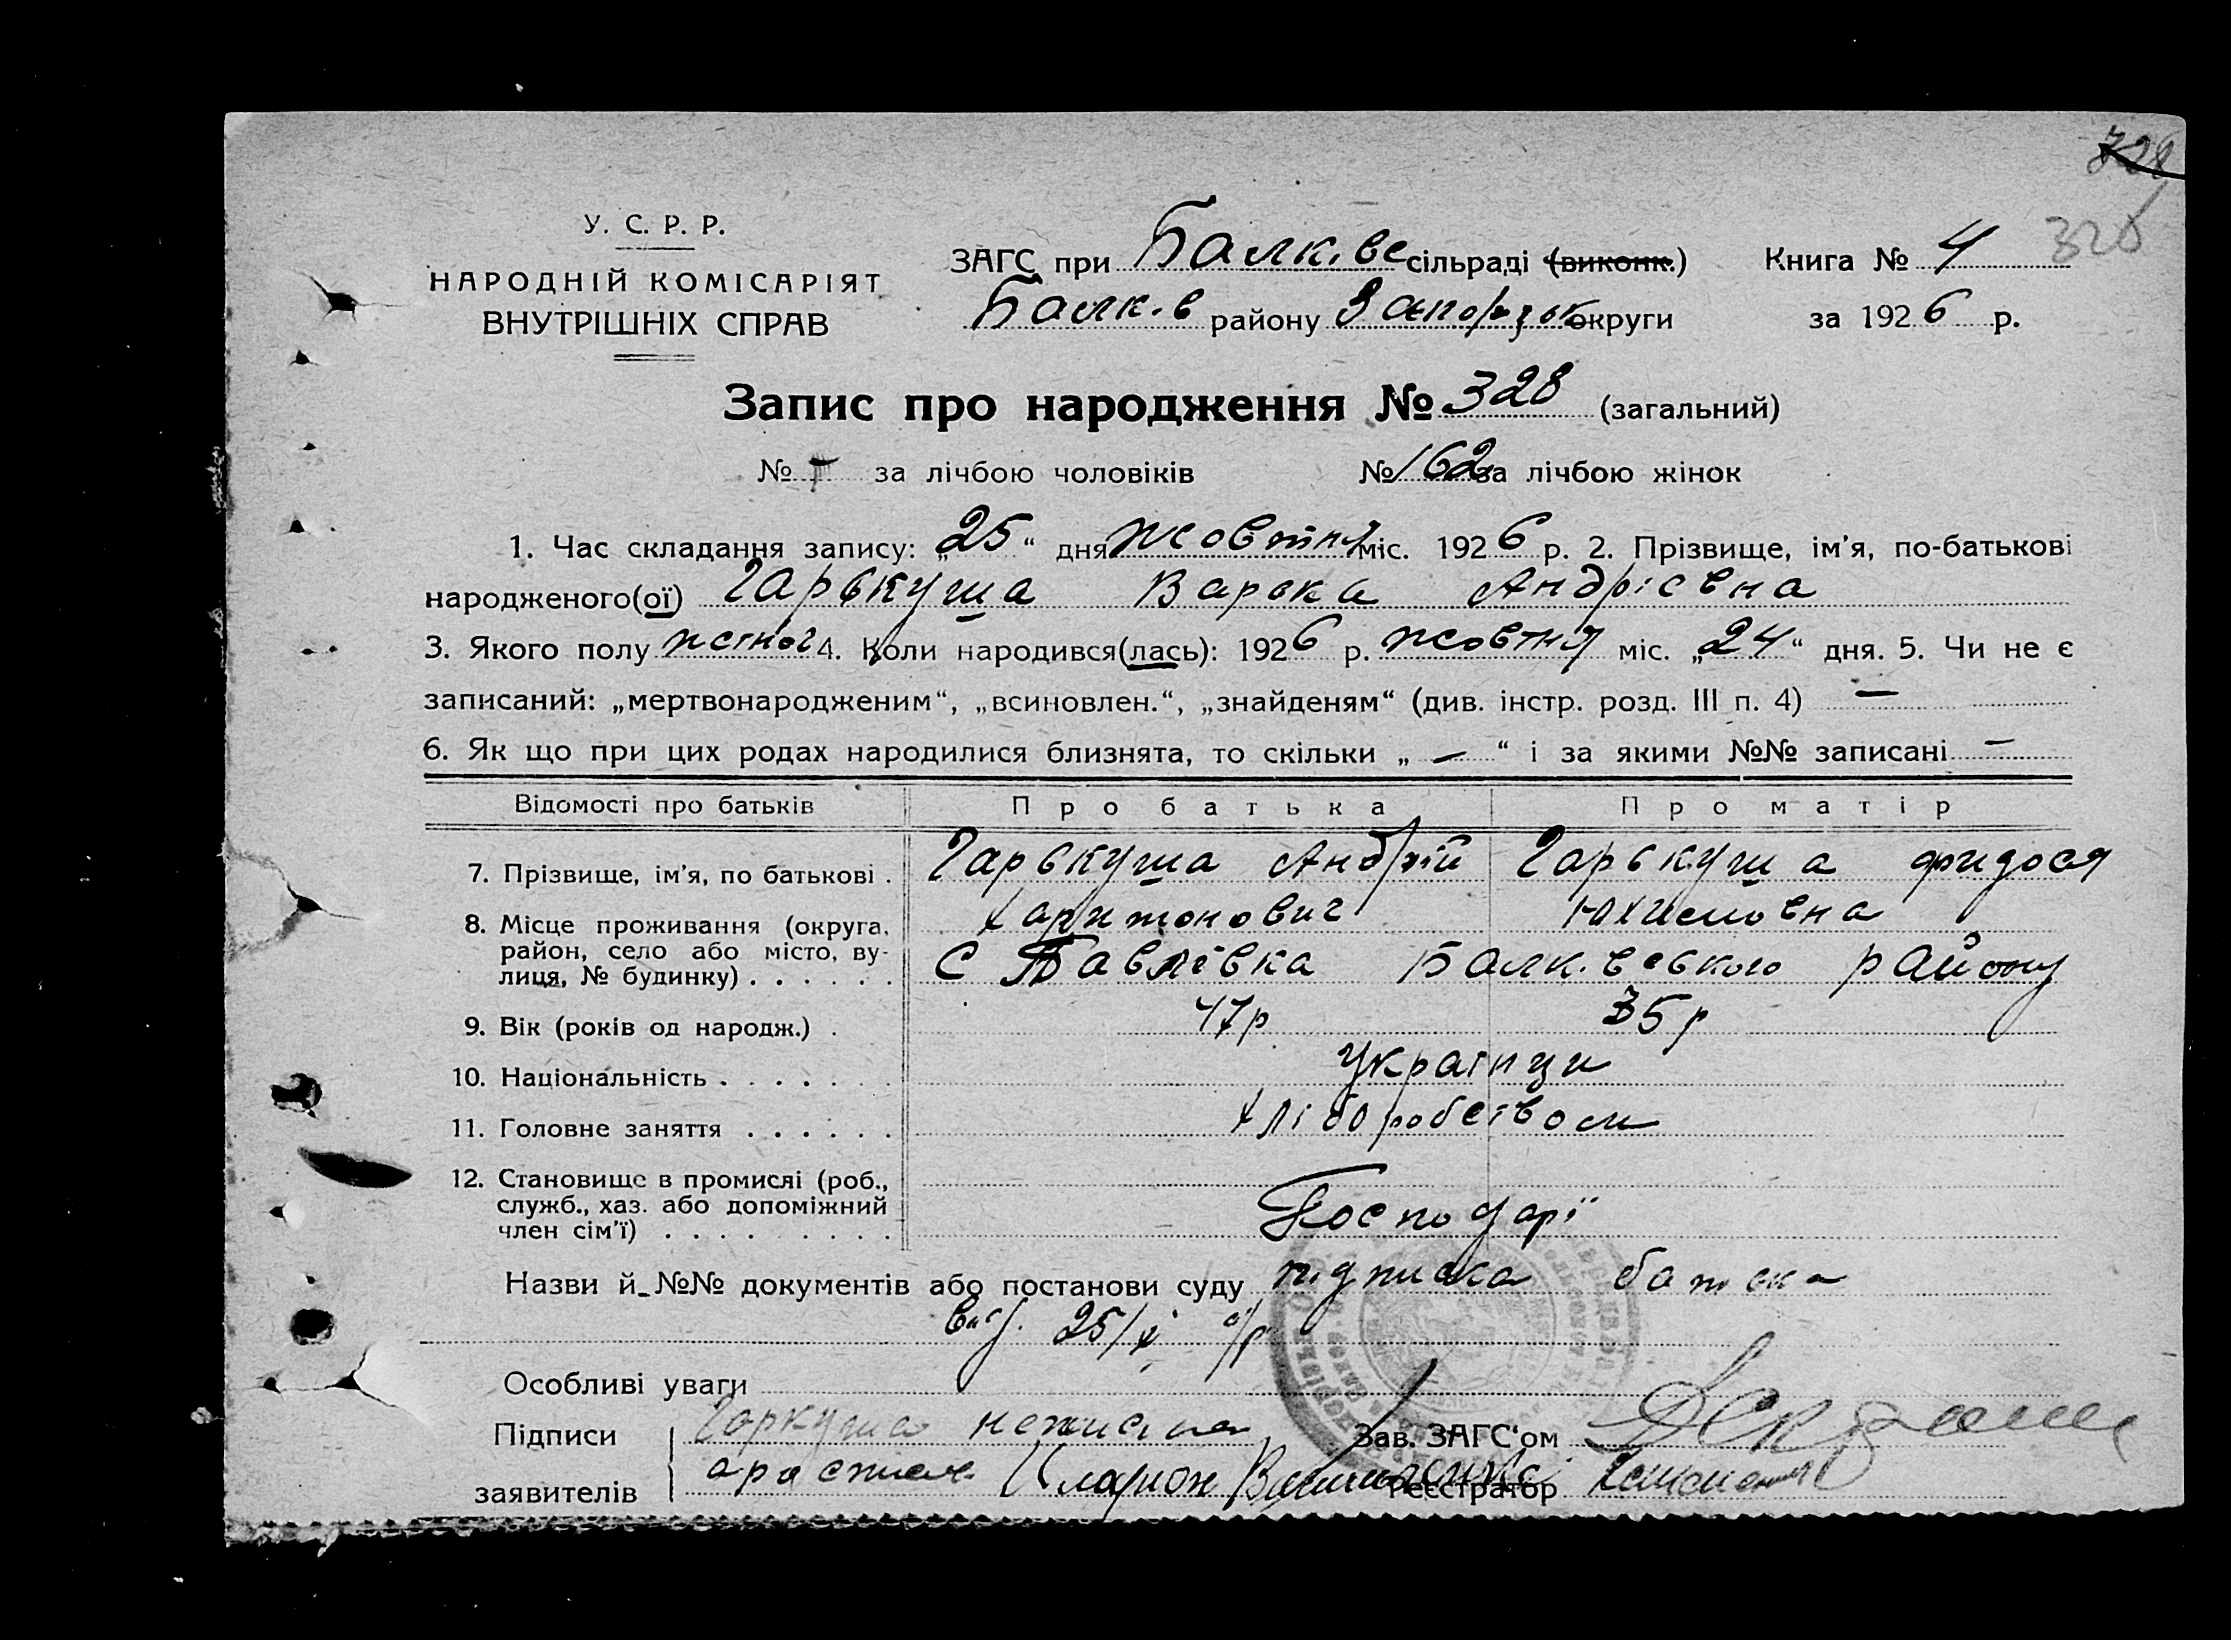 728
326
У. С. Р. Р.
НАРОДНІЙ КОМІСАРІЯТ
ВНУТРІШНІХ СПРАВ
ЗАГС при Балк.вс сільраді (виконк.) Книга № 4
Балк.в району Запоріzьк округи за 1926 р.
Запис про народження № 328 (загальний)
№ - за лічбою чоловіків № 162 за лічбою жінок
1. Час складання запису: „25“ дня жовтня міс. 1926 р. 2. Прізвище, ім’я, по-батькові
народженого(ої) Гарькуша Варька Андрієвна
3. Якого полу жіноч 4. Коли народився(лась): 1926 р. жовтня міс. „24“ дня. 5. Чи не є
записаний: „мертвонародженим“, „всиновлен.“, „знайденям“ (див. інстр. розд. III п. 4) —
6. Як що при цих родах народилися близнята, то скільки „ — “ і за якими №№ записані —
Відомості про батьків Про батька Про матір
7. Прізвище, ім’я, по батькові . Гарькуша Андрій Гарькуша Фидося
Харитонович Юхимовна
8. Місце проживання (округа,
район, село або місто, ву-
лиця, № будинку) . . . . . . С Павлівка Балк.вського району
9. Вік (років од народж.) . 47р 35р
10. Національність . . . . . . . Українци
11. Головне заняття . . . . . . хліборобством
12. Становище в промислі (роб.,
служб., хаз. або допоміжний
член сім’ї) . . . . . . . . Господарі
Назви й №№ документів або постанови суду підписка батька
від. 25/X с/р
Особливі уваги
Підписи
заявителів
Гаркуша неписьмен
Зав. ЗАГС‘ом
Иларион
Реєстратор